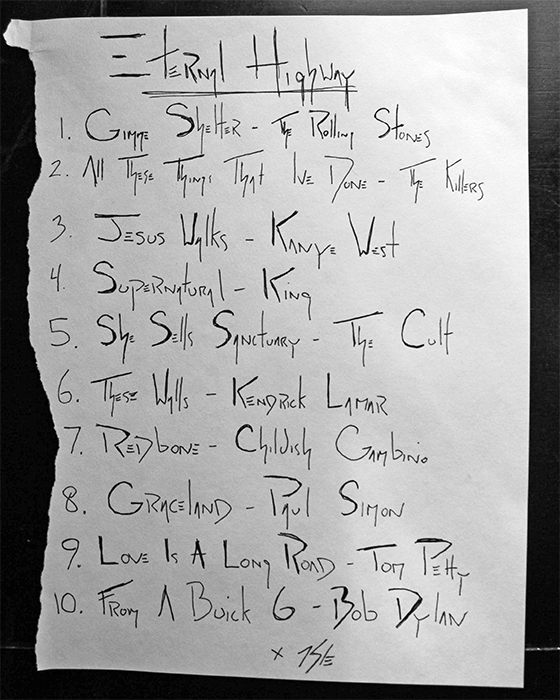 Eternal Highway
1. Gimme Shelter - The Rolling Stones
2. All These Things That I've Done - The Killers
3. Jesus Walks - Kanye West
4. Supernatural - King
5. She Sells Sanctuary - The Cult
6. These Walls - Kendrick Lamar
7. Redbone - Childish Gambino
8. Graceland - Paul Simon
9. Love Is A Long Road - Tom Petty
10. From A Buick 6 - Bob Dylan
x